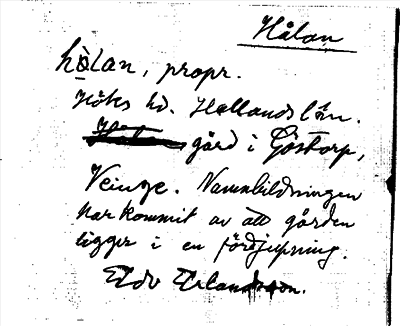 Hålan
hålan, propr.
Höks hd. Hallands län.
gård i Göstorp,
Veinge. Namnbildningen
har kommit av att gården
ligger i en fördjupning.
Edv Erlandsson.